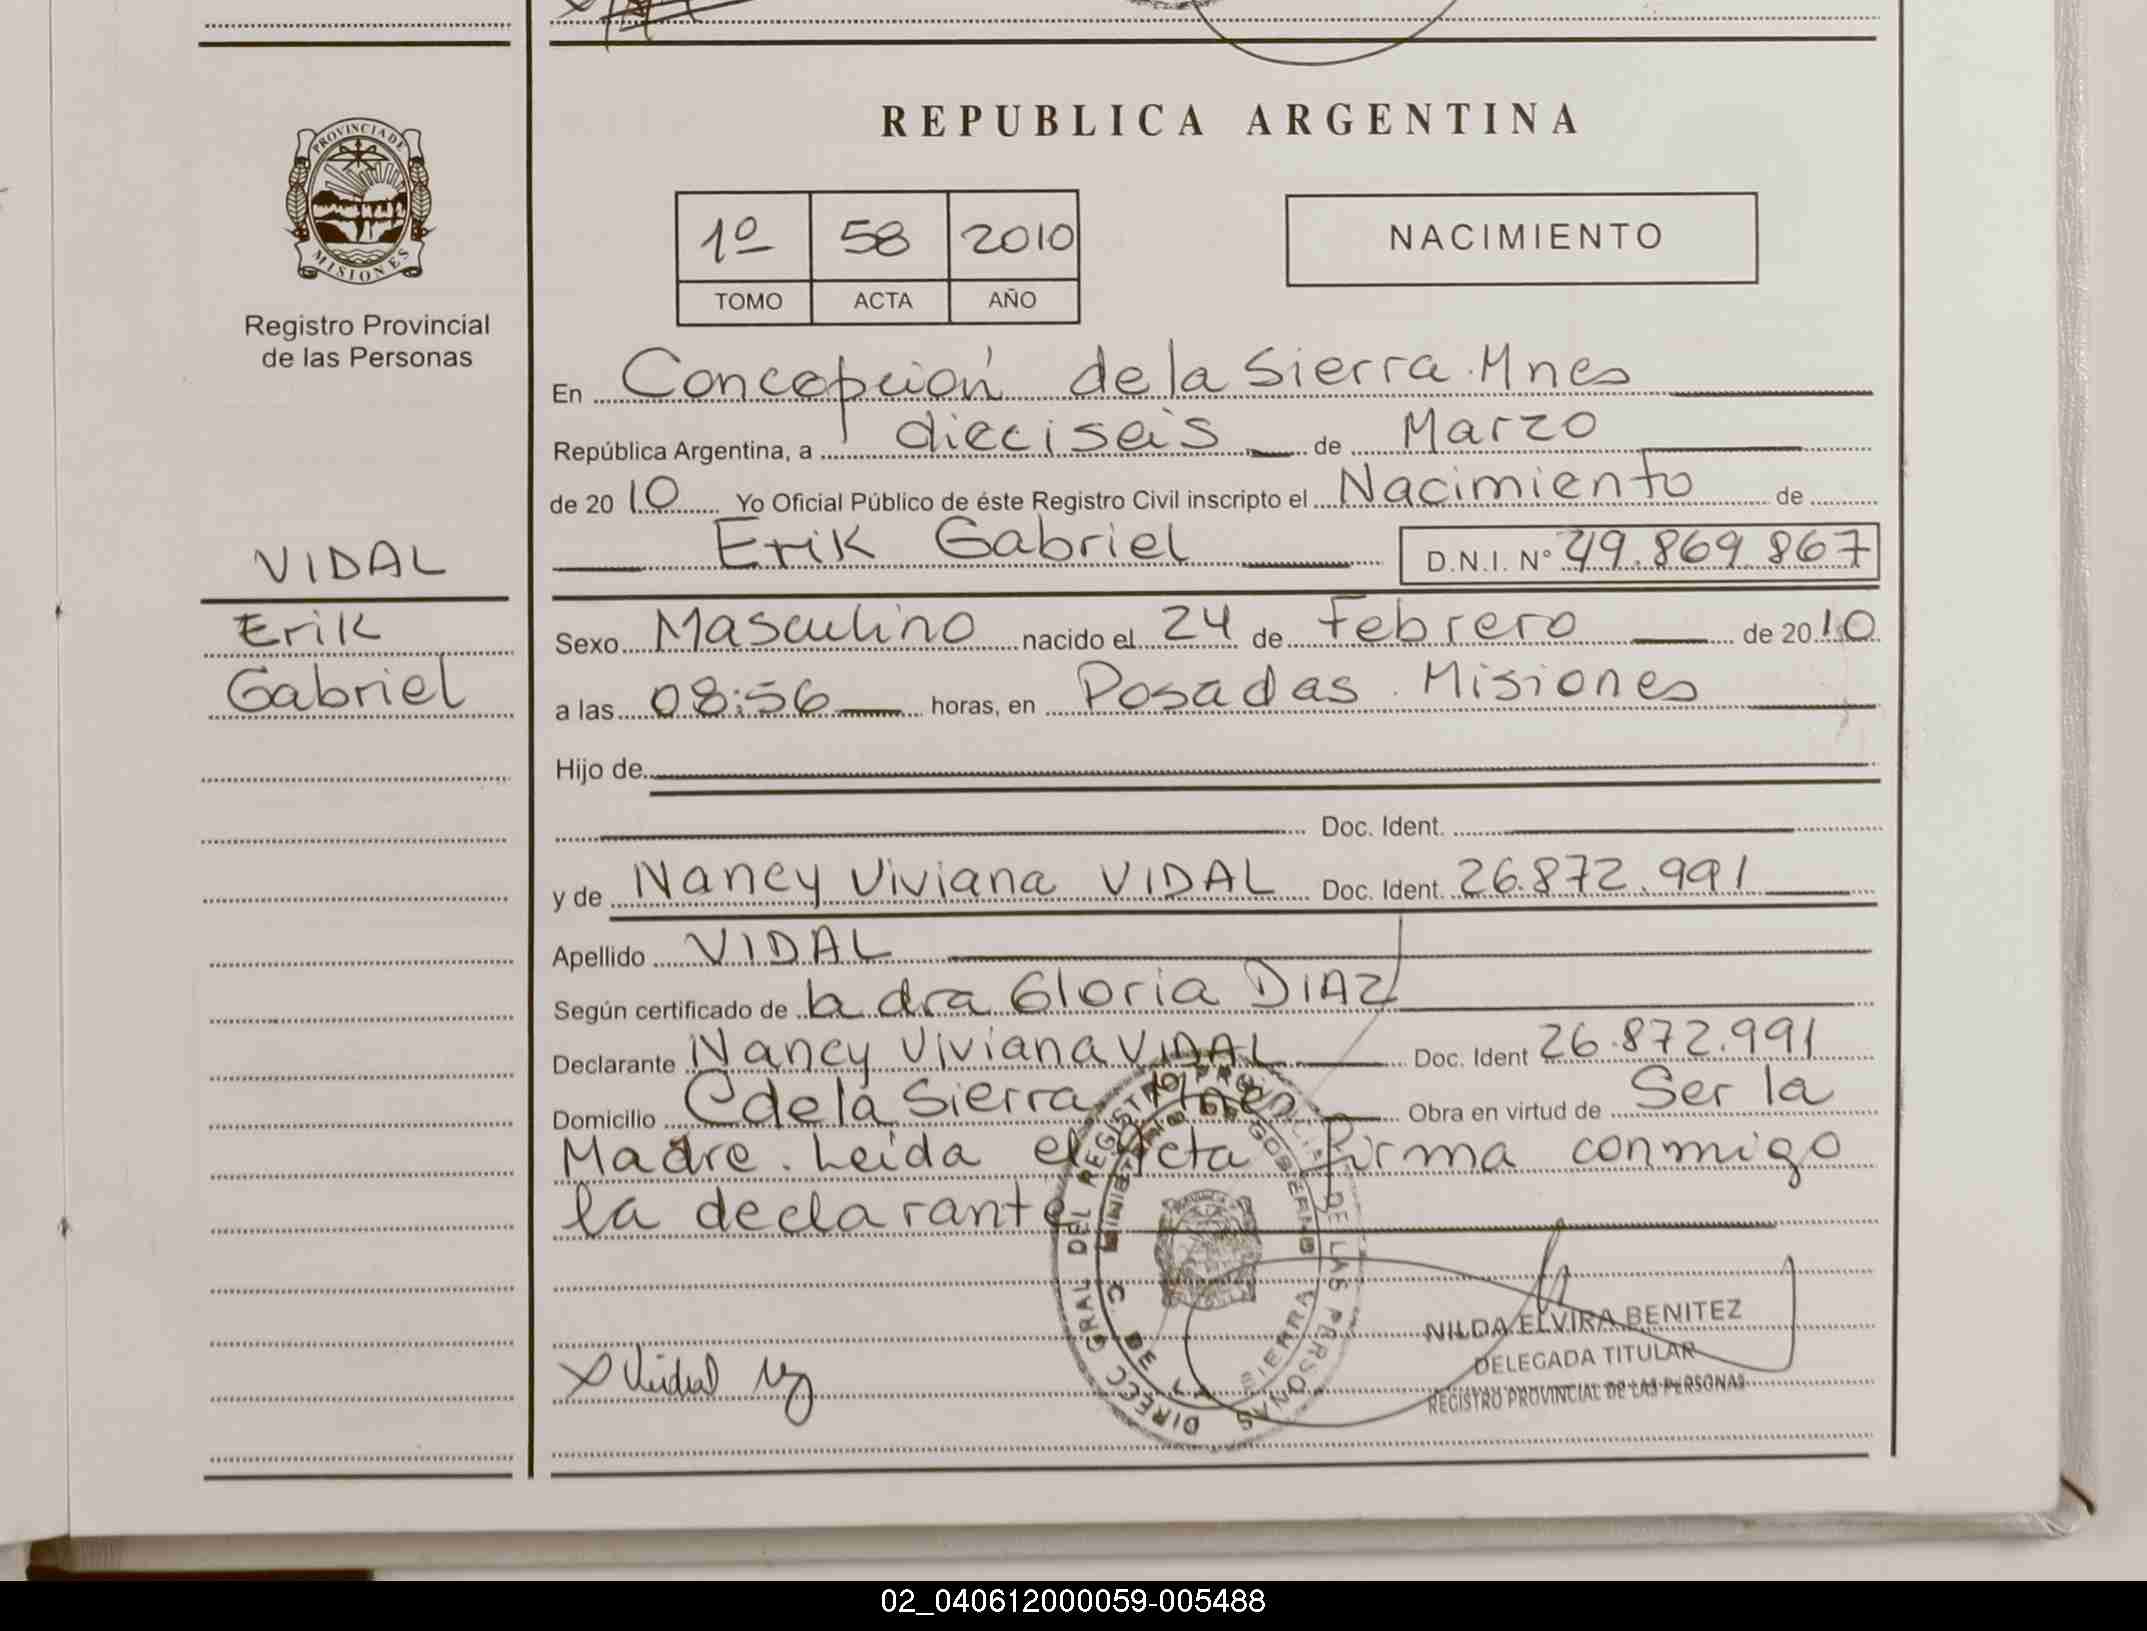 REPUBLICA ARGENTINA
PROVINCIA DE
MISIONES
Registro Provincial
de las Personas
1º 58 2010
TOMO ACTA AÑO
NACIMIENTO
En Concepción de la Sierra. Mnes
República Argentina, a dieciseis de Marzo
de 2010 Yo Oficial Público de éste Registro Civil inscripto el Nacimiento de
Erik Gabriel D.N.I. Nº 49.869.867
VIDAL
Erik
Gabriel
Sexo Masculino nacido el 24 de Febrero de 2010
a las 08:56 horas, en Posadas. Misiones
Hijo de
Doc. Ident.
y de Nancy Viviana VIDAL Doc. Ident. 26.872.991
Apellido VIDAL
Según certificado de la dra Gloria DIAZ
Declarante Nancy Viviana VIDAL Doc. Ident 26.872.991
Domicilio C de la Sierra Mnes Obra en virtud de Ser la
Madre. Leida el Acta firma conmigo
la declarante
DIREC. GRAL DEL REGISTRO PROVINCIAL DE LAS PERSONAS
MINISTERIO DE GOBIERNO
C. DE SIERRA
NILDA ELVIRA BENITEZ
DELEGADA TITULAR
REGISTRO PROVINCIAL DE LAS PERSONAS
x Vidal
02_040612000059-005488